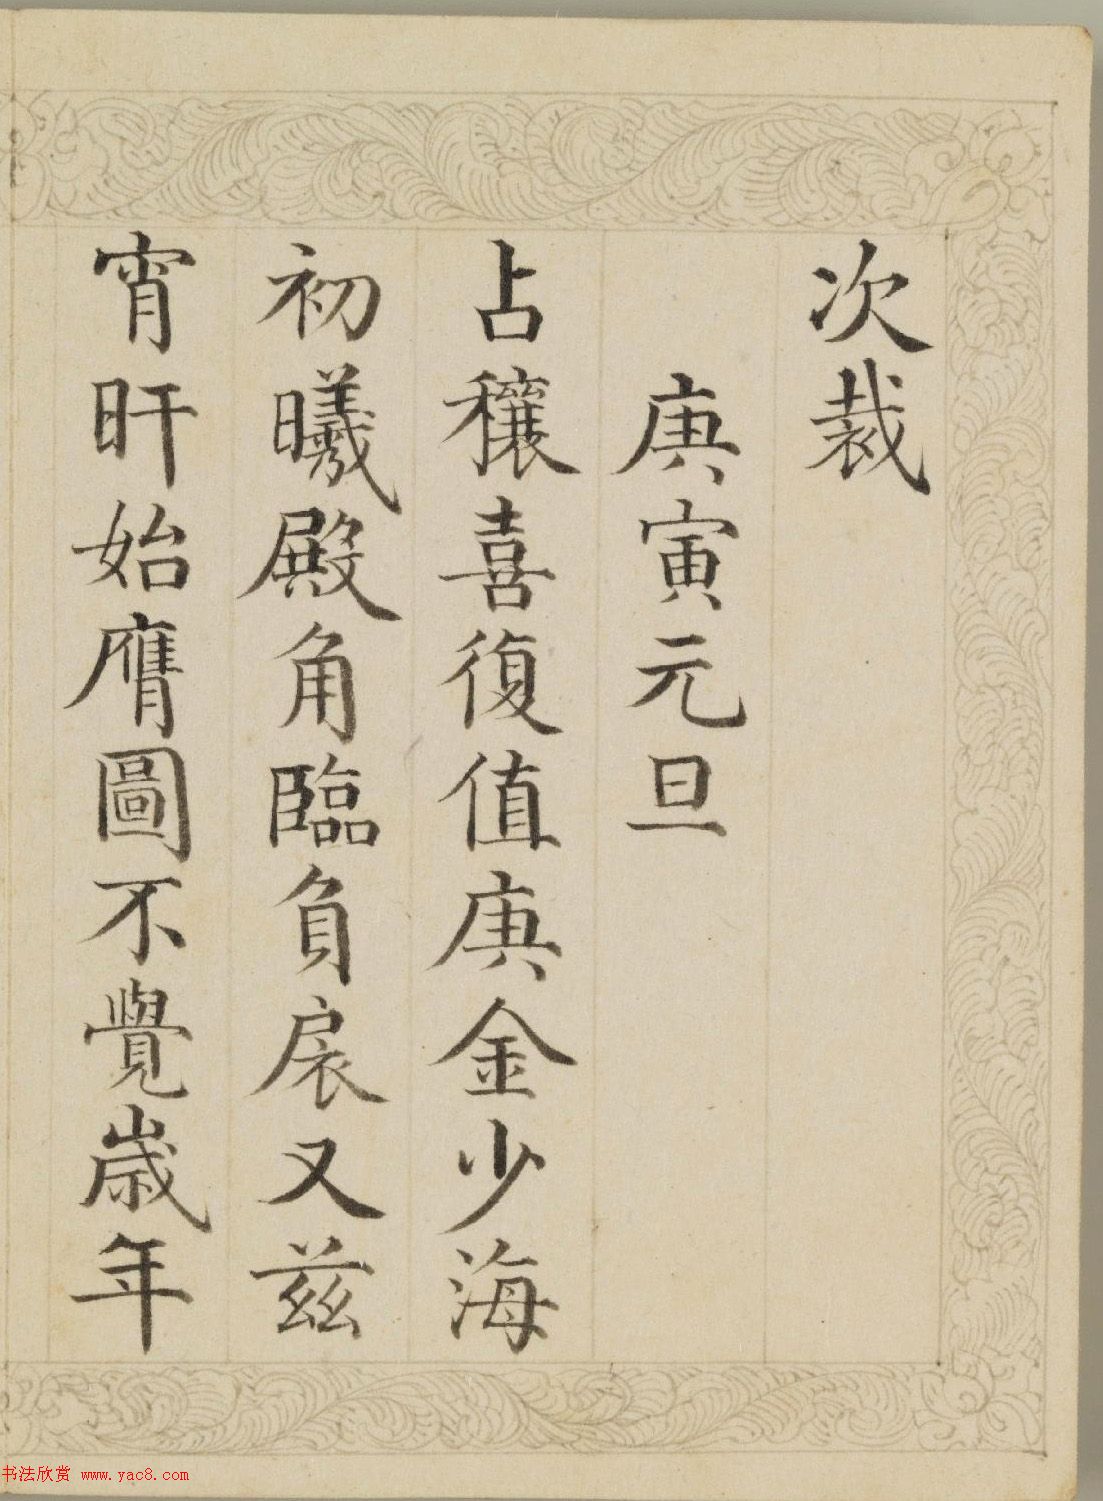 次裁
庚寅元旦
占穰喜復值庚金少海
初曦殿角臨負扆又兹
宵旰始膺圖不覺歲年
书法欣赏 www.yac8.com